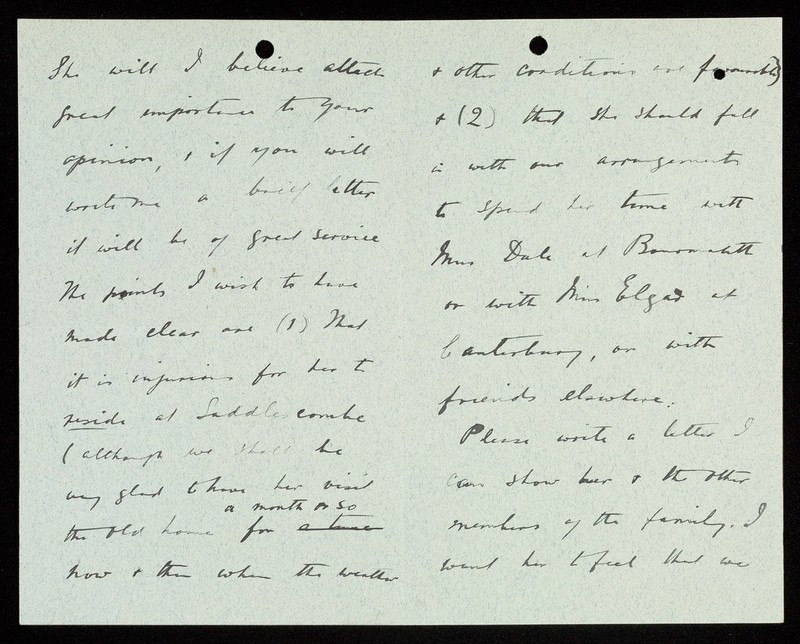 She will I believe attach
great importance to your
opinion, & if you will
write me a brief letter
it will be of great service
The points I wish to have
made clear are (1) That
it is injurious for her to
reside at Saddlescombe
(although we shall be
very glad to have her visit
a month or so
the old home for a time
now & then when the weather
& other conditions are favourable)
& (2) that she should fall
in with our arrangements
to spend her time with
Mrs Dale at Bournemouth
or with Miss Elgar at
Canterbury, or with
friends elsewhere.
Please write a letter I
can show her & the other
members of the family. I
want her to feel that we